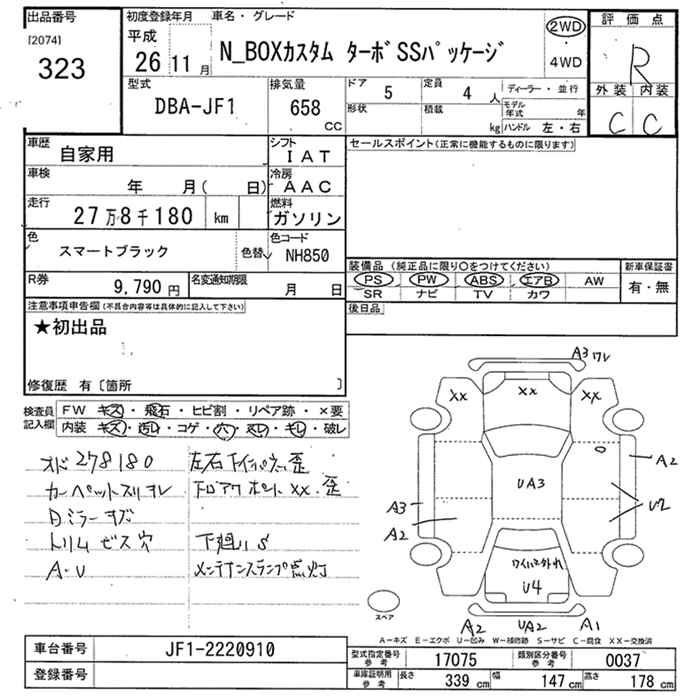 出品番号
[2074]
323
初度登録年月
平成
26 11 月
車名・グレード
N_BOXカスタム ターボSSパッケージ
2WD
・
4WD
評価点
R
外装 内装
C C
型式
DBA-JF1
排気量
658
CC
ドア 5
定員 4 人
形状
積載 kg
ディーラー・並行
モデル年式 年
ハンドル 左・右
車歴 自家用
シフト IAT
車検 年 月( 日)
冷房 AAC
走行 27万8千180 km
燃料 ガソリン
色 スマートブラック
色替
色コード NH850
R券 9,790円
名変通知期限 月 日
セールスポイント(正常に機能するものに限ります)
装備品(純正品に限り○をつけてください)
PS PW ABS エアB AW
SR ナビ TV カワ
新車保証書
有・無
後日品
注意事項申告欄(不具合内容等は具体的に記入して下さい)
★初出品
修復歴 有〔箇所 〕
検査員記入欄
FW キズ・飛石・ヒビ割・リペア跡・×要
内装 キズ・汚レ・コゲ・穴・スレ・キレ・破レ
オド278180
カーペットスリキレ
Dミラーキズ
トリムビス穴
A・U
左右 歪
XX・歪
下廻りS
メンテナンスランプ点灯
A3 ワレ
XX
XX
XX
A2
UA3
U2
A3
A2
ワイパー外れ
U4
A2
UA2
A1
スペア
A−キズ E−エクボ U−凹み W−補修跡 S−サビ C−腐食 XX−交換済
車台番号 JF1-2220910
登録番号
型式指定番号 参考 17075
類別区分番号 参考 0037
車庫証明用 参考 長さ 339 cm 幅 147 cm 高さ 178 cm